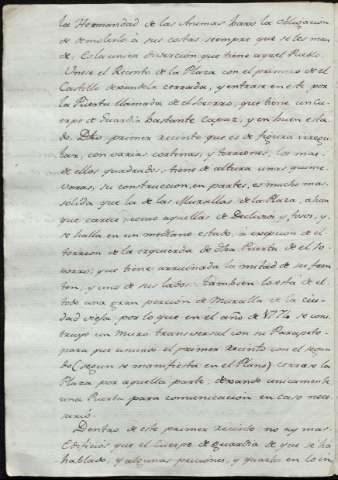 la Hermandad de las Animas baxo la obligacion
de demolerlo à sus costas siempre que se les man
de; Es la unica diversion que tiene aquel Pueblo.
Unese el Recinto de la Plaza con el primero de el
Castillo dexandola cerrada, y entrase en este por
la Puerta llamada de el Socorro, que tiene un Cu
erpo de Guardia bastante Capaz, y en buen esta
do. Dho. primer recinto que es de figura irregu
lar, con varias cortinas, y torreones, los mas
de ellos quadrados, tiene de altura unas quince
varas, su construccion, en partes, es mucho mas
solida que la de las Murallas de la Plaza, ahun
que carece, como aquellas de Declivios, y fosos, y
se halla en un mediano estado, à excepcion de el
torreon de la izquierda de Dha Puerta de el So
corro, que tiene arruinada la mitad de su fren
te, y uno de sus lados: tambien lo esta de el
todo una gran porcion de Muralla de la ciu
dad vieja, por lo que en el año de 1774 se cons
truyo un Muro transversal con su Parapeto
para que uniendo el primer recinto con el segun
do (segun se manifiesta en el Plano) cerrase la
Plaza por aquella parte, dexando unicamente
una Puerta para comunicacion en caso nece
sario.
Dentro de este primer recinto no ay mas
Edificios que el Cuerpo de guardia de que se ha
hablado, y algunas prisiones, y quarto en lo in